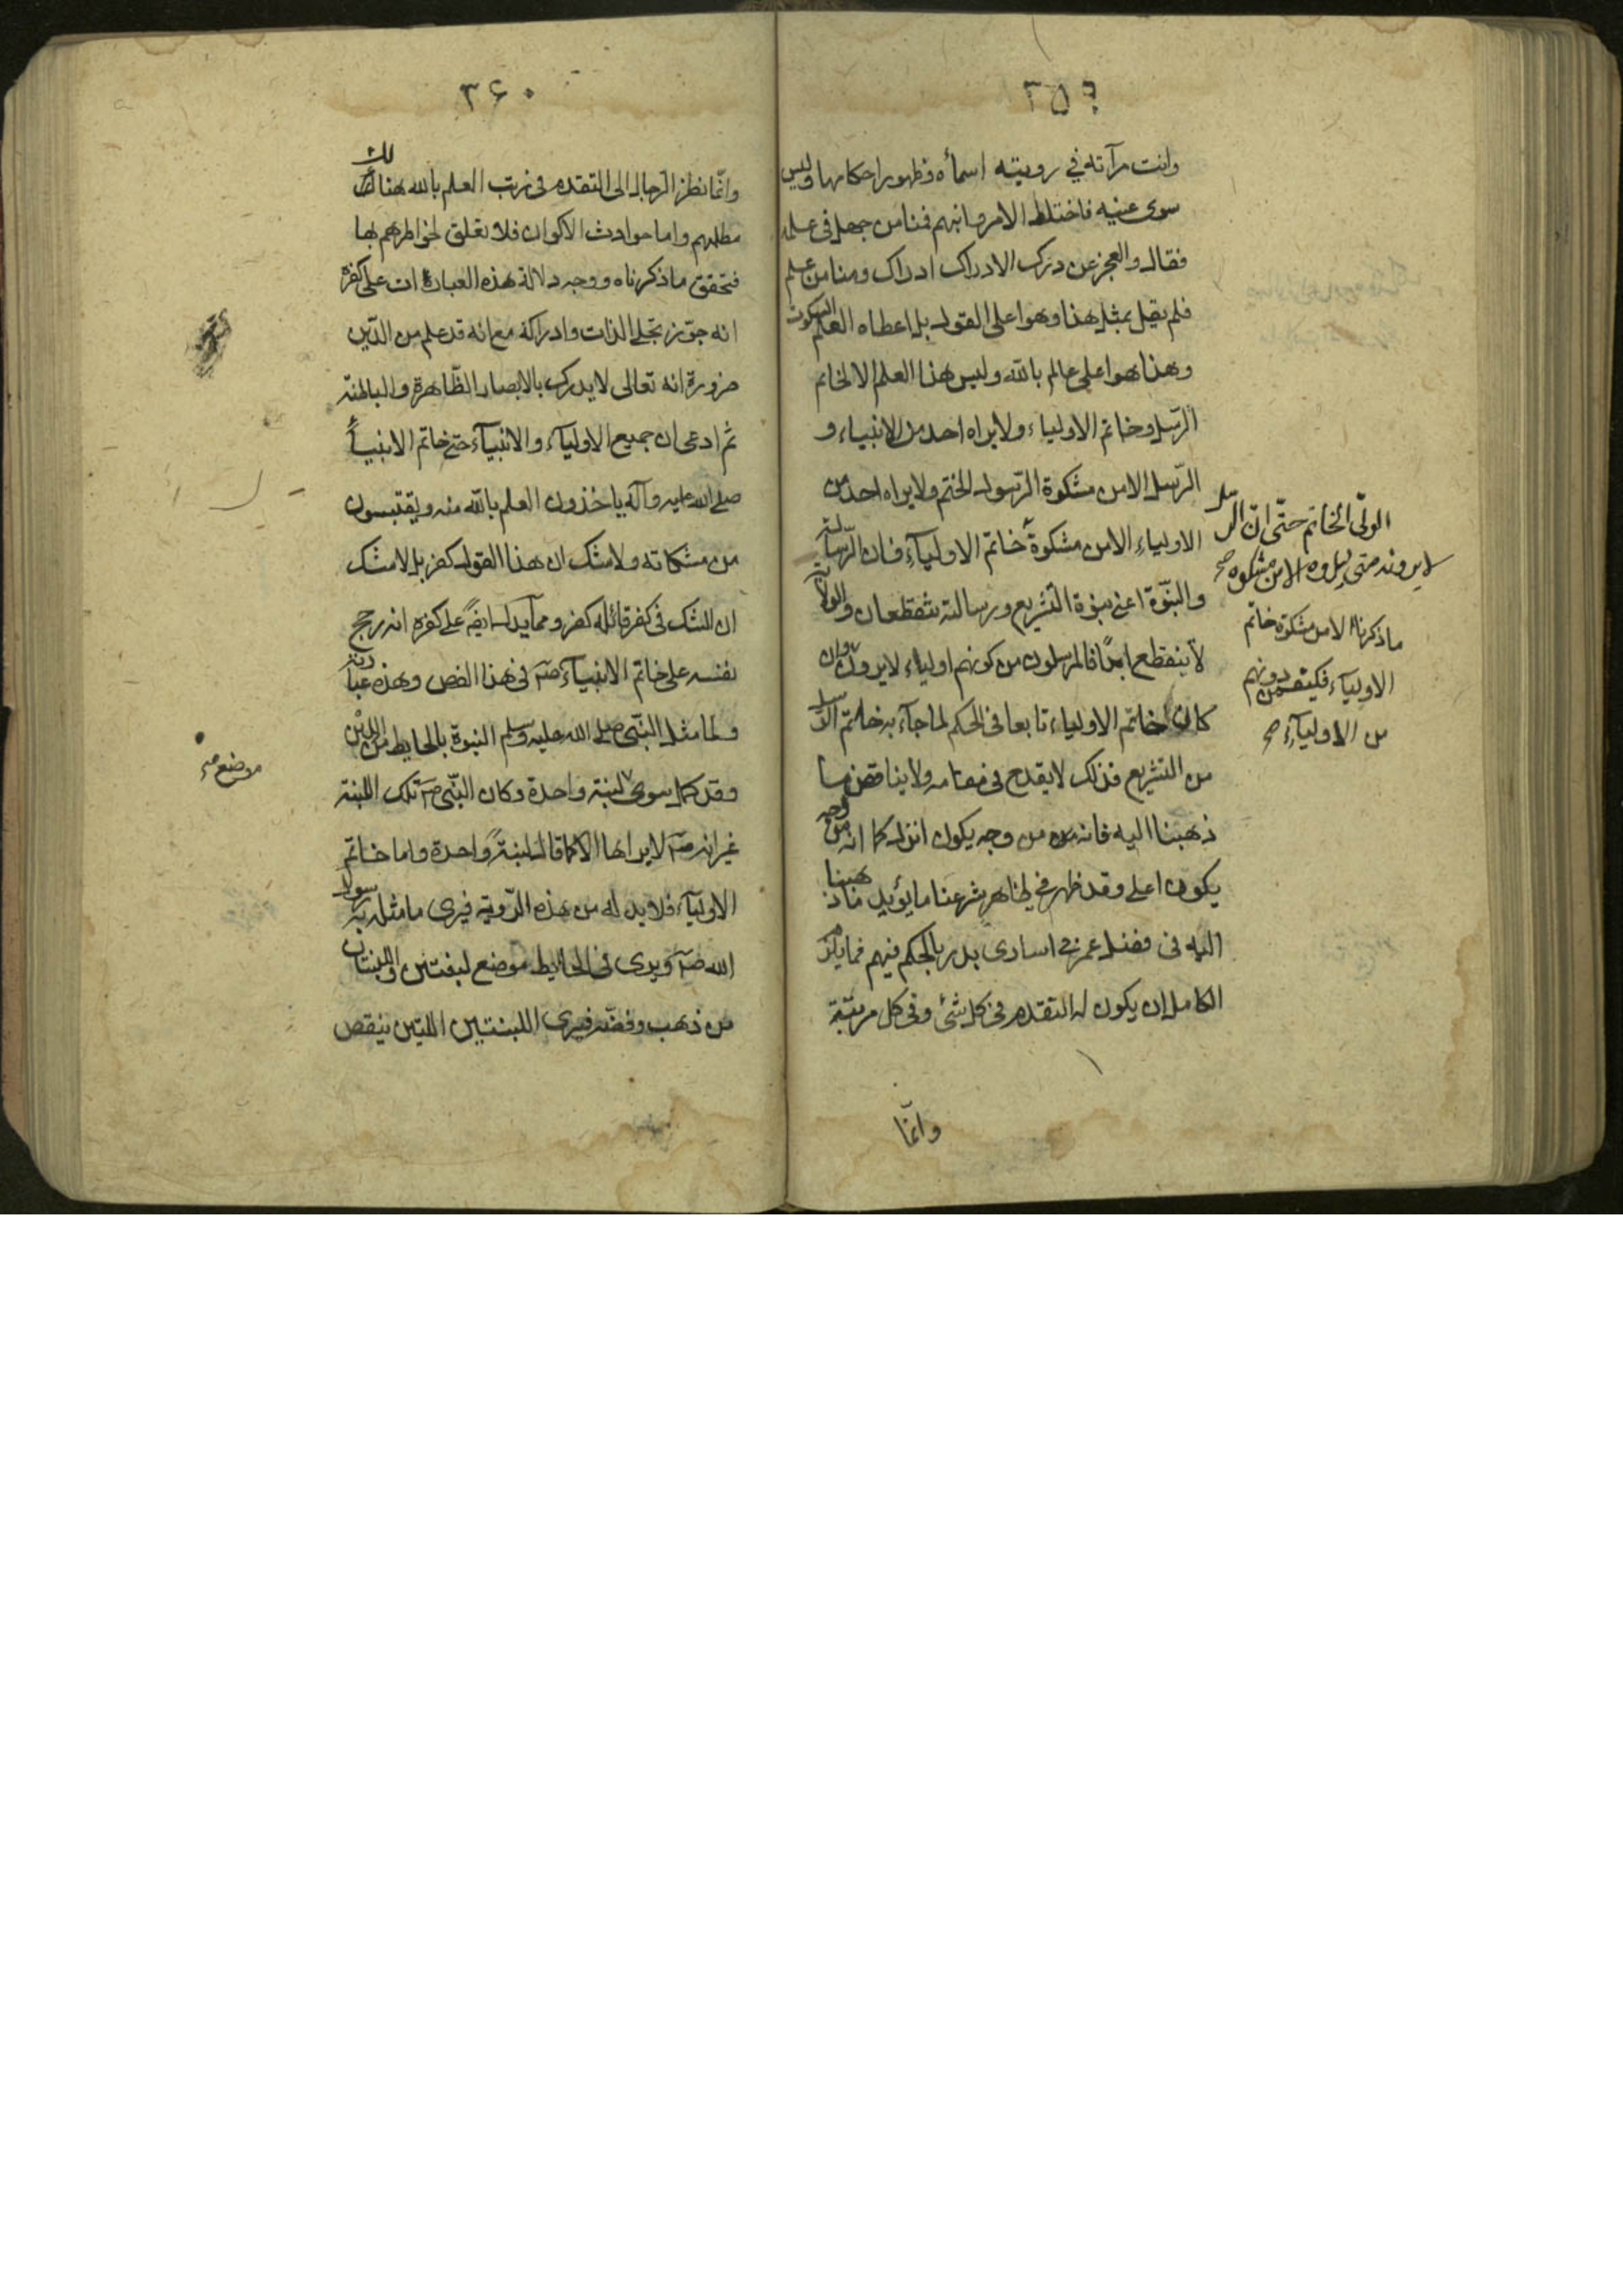 ٣٥٩
وانت مرآته في رويته اسمأه وظهور احكامها وليس
سوى عينه فاختلط الامر وانبهم فمنا من جهل في علمه
فقال والعجز عن درك الادراك ادراك ومنا من علم
فلم يقل بمثل هذا وهو اعلى القول بل اعطاه العلم السكوت
وهذا هو اعلى عالم بالله وليس هذا العلم الا لخاتم
الرّسل وخاتم الاولياء ولا يراه احد من الانبياء و
الرّسل الا من مشكوة الرّسول الختم ولا يراه احد من
الاولياء الا من مشكوة خاتم الاوليآء فان الرّسالة
والنبّوة اعنى نبوة التشريع ورسالته تنقطعان والولاية
لا ينقطع ابدًا فالمرسلون من كونهم اولياء لا يرون وان
كان خاتم الاولياء تابعا في الحكم لما جآء به خاتم الرسل
من التشريع فذلك لا يقدح في مقامه ولا يناقض ما
ذهبنا اليه فانه من وجه يكون انزل كما انه من وجه
يكون اعلى وقد ظهر في ظاهر شرعنا ما يؤيد ما ذهبنا
اليه في فضل عمر في اسارى بدر بالحكم فيهم فما يلزم
الكامل ان يكون له التقدم في كل شئ وفى كل مرتبة
وانّما
الولّى الخاتم حتّى انّ الرسل
لا يرونه متى راوه الا من مشكوة صح
ما ذكرناه الا من مشكوة خاتم
الاوليآء فكيف من دونهم
من الاوليآء صح
٣۶٠
وانّما نظر الرّجال الى التقدم فى رتب العلم بالله هنالك
مطلبهم واما حوادث الاكوان فلا تعلق لخواطرهم بها
فتحقق ما ذكرناه ووجه دلالة هذه العبارات على كفره
انه جوّز تجلى الذات وادراكه مع انه قد علم من الدّين
ضرورة انه تعالى لا يدرك بالابصار الظّاهرة والباطنة
ثم ادعى ان جميع الاوليآء والانبيآء حتى خاتم الانبيآء
صلى الله عليه وآله ياخذون العلم بالله منه ويقتبسون
من مشكاته ولا شك ان هذا القول كفر بل لا شك
ان الشك فى كفر قائله كفر ومما يدل ايضًا على كفره انه رجح
نفسه على خاتم الانبيآء صّ فى هذا الفص وهذه عبارته
ولما مثل النّبى صلى الله عليه وسلم النبوة بالحايط من اللبن
وقد كمل سوى لبنة واحدة وكان النّبى صّ تلك اللبنة
غير انه صّ لا يراها الا كما قال لبنةً واحدة واما خاتم
الاوليآء فلا بد له من هذه الرّوية فيرى ما مثله به رسول
الله صّ ويرى فى الحايط موضع لبنتين واللبنتان
من ذهب وفضّه فيرى اللبنتين اللتين ينقص
موضع صح